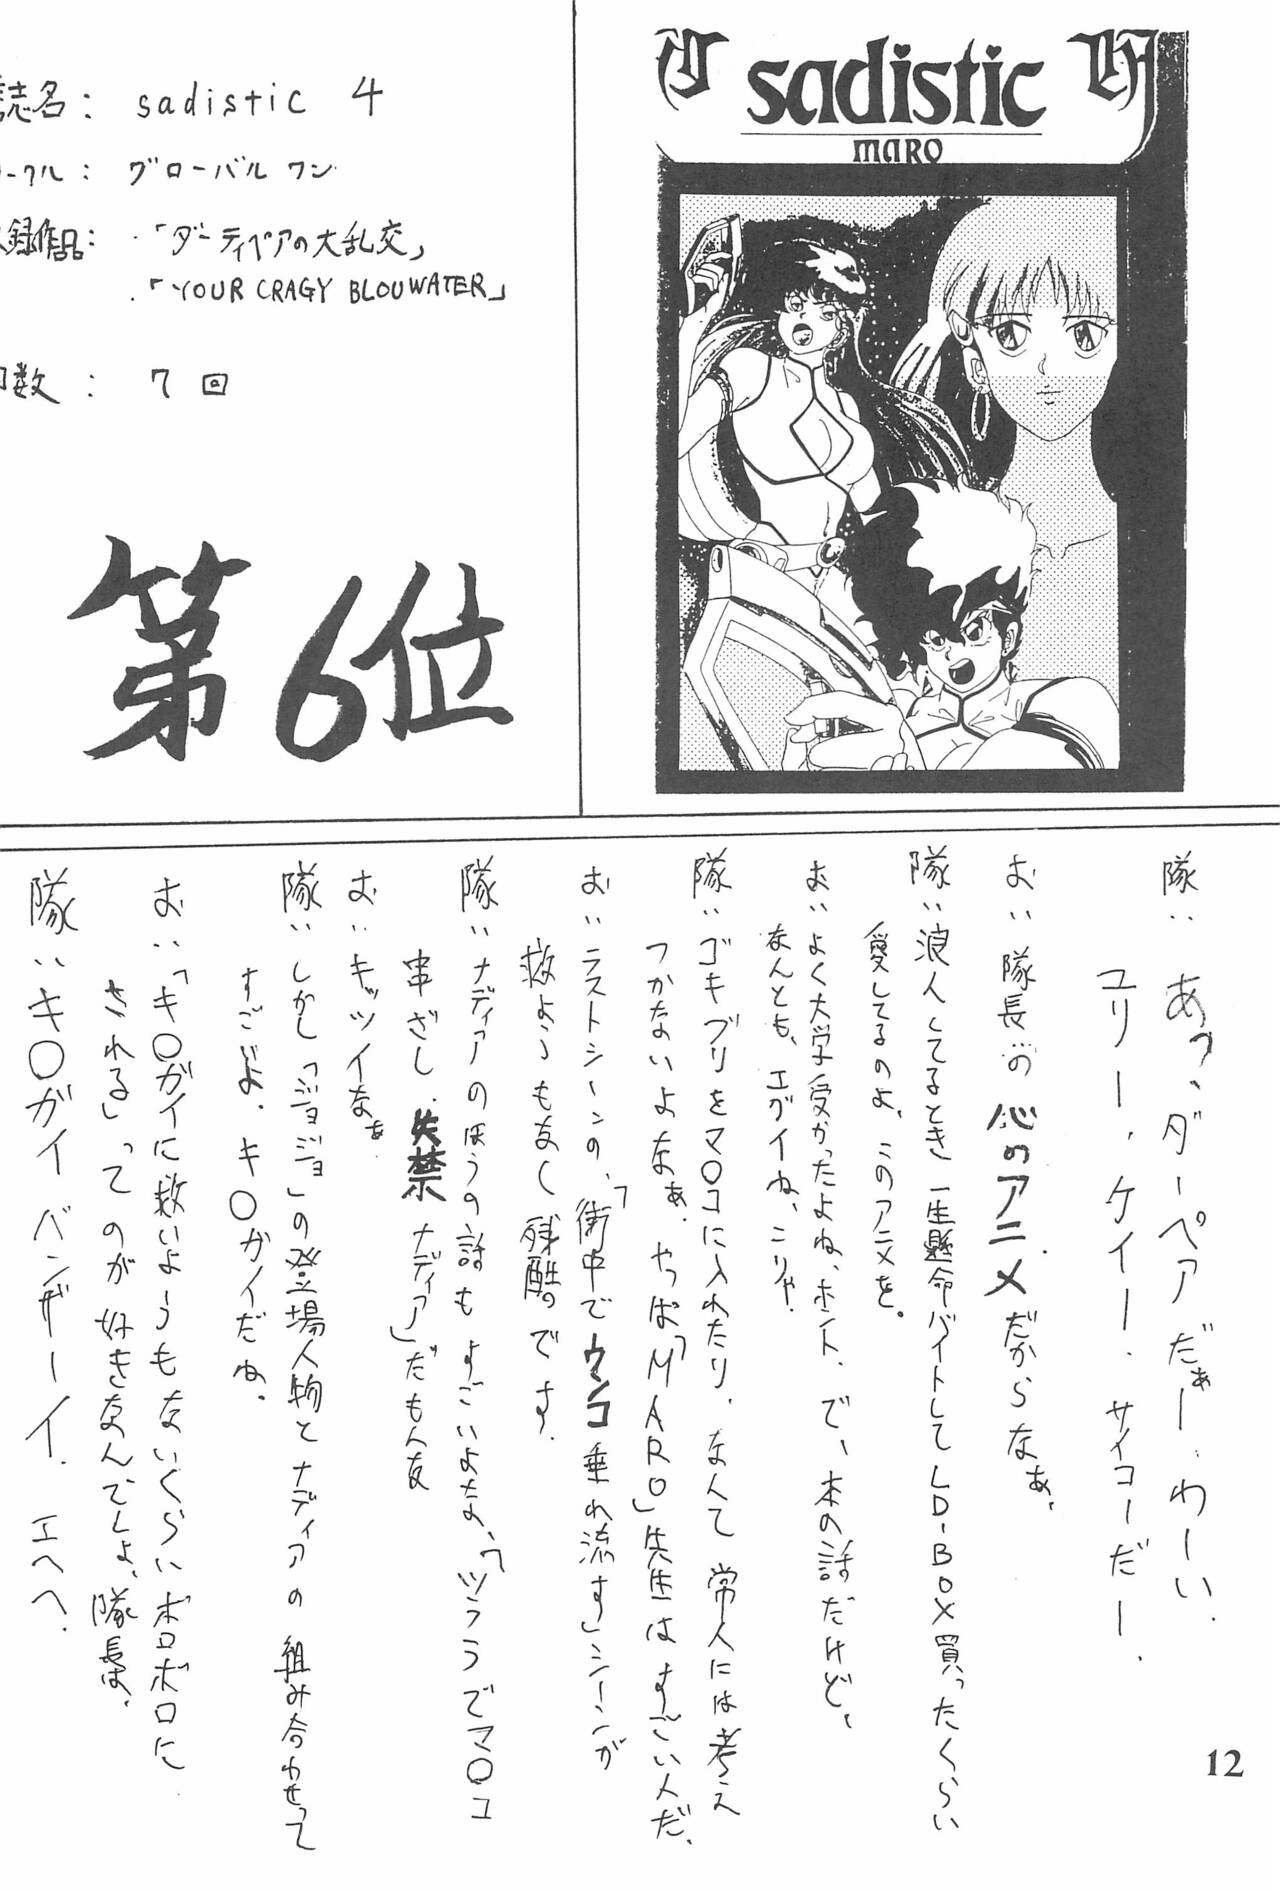 sadistic
MARO
誌名: sadistic 4
ークル: グローバルワン
録作品: ・「ダーティペアの大乱交」
・「YOUR CRAGY BLOUWATER」
数: 7回
第6位
隊‥あっ、ダーペアだぁー、わーい、
ユリー、ケイー、サイコーだー、
お‥隊長の心のアニメだからなぁ、
隊‥浪人してるとき一生懸命バイトしてLD-BOX買ったくらい
愛してるのよ、このアニメを。
お‥よく大学受かったよね、ホント、で、本の話だけど、
なんとも、エグイね、こりゃ、
隊‥ゴキブリをマ〇コに入れたり、なんて常人には考え
つかないよなぁ、やっぱ「MARO」先生はすごい人だ、
お‥ラストシーンの、「街中でウンコ垂れ流す」シーンが
救ようもなく残酷のです、
お‥キッツイなぁ
すごいよ、キ〇ガイだね、
お‥「キ〇ガイに救いようもないくらいボロボロに
される」ってのが好きなんでしょ、隊長は、
隊‥キ〇ガイバンザーイ、エヘヘ、
12